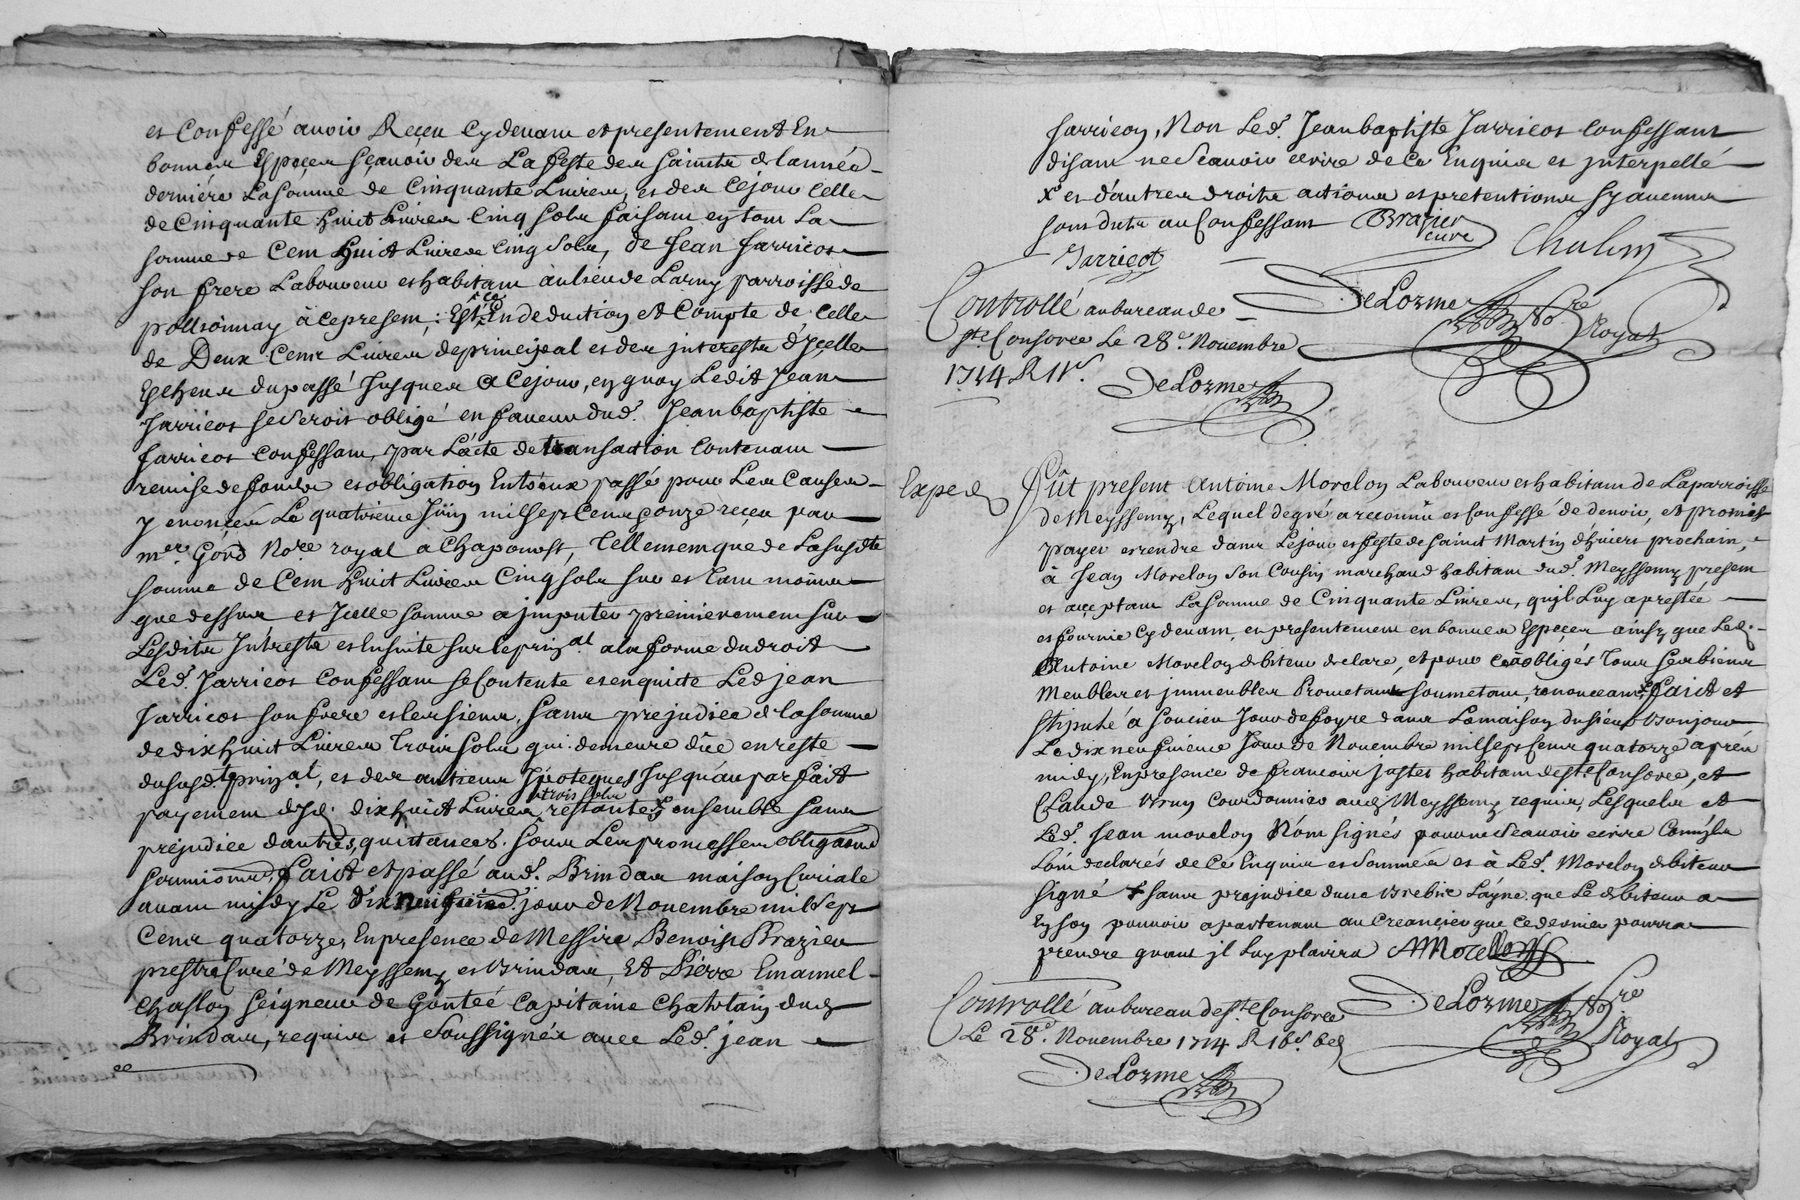 et Confessé avoir Reçeu Cydevant et presentement En
bonnes Espeçes sçavoir des La feste des saincts de lannéé
derniére La somme de Cinquante Livres, et des Cejour Celle
de Cinquante huit Livres Cinq sols faisant en tout La
somme de Cent huit Livres Cinq sols, de Jean Jarricot
son frere Laboureur et habitant au lieu de Larny parroisse de
pollionnay à ce present; Et ce En deduction et Compte de Celle
de Deux Cent Livres de principal et des jnterests d'yçelle
Escheus du passé Jusques a Cejour, en quoy Ledit Jean
Jarricot se seroit obligé en faveur dud. Jean baptiste
Jarricot Confessant, par L'acte de transaction Contenant
remise de fonds et obligation Entreux passé pour Les Causes
y enoncéés Le quatrieme Juin mil sept Cent onze reçeu par
me. Gónd Nore. royal a Chaponost, Tellement que de La susdte
somme de Cent huit Livres Cinq sols sur et tant moins
que dessus et Jcelle somme a jmputer premierement sur
Lesdits Jntrests et Ensuite sur le prinal a la forme du droit
Led. Jarricot Confessant se Contente et en quitte Led jean
Jarricot son frere et les siens, sans prejudice de la somme
de dix huit Livres Trois sols qui demeure dûe en reste
du susdt. prinal, et des antiens Jpoteques Jusqu'au parfait
payement desd. dix huit Livres trois sols restantes ensemble sans
prejudice dautres quittances. sous Les promesses obligaons
soumisions Faict et passé aud. Brindas maison Curiale
avant midy Le dix neufvie. jour de Novembre mil sept
Cent quatorze, En presence de Messire Benoist Brazier
prestre Curé de Meyssemy et Brindas, Et Pierre Emanuel
Chaslon seigneur de Gontéé Capitaine Chatelain dud
Brindas, requis et soussignés avec Led. jean
Jarricot, Non Led. Jean baptiste Jarricot Confessant
disant ne sçavoir ecrire de Ce Enquis et jnterpellé
X et d'autres droits actions et pretentions sy aucuns
sont duts au Confessant Brazier
curé
Chalon
Jarricot
DeLorme Nore.
Royal
Controllé au bureau de
ste. Consorce Le 28e. Novembre
1714 R 11s.
DeLorme
Exped
Fût present Antoine Morelon Laboureur et habitant de La parroisse
de Meyssemy, Lequel de gré a reconnu et Confessé de devoir, et promet
payer et rendre dans Le jour et feste de sainct Martin d'hivert prochain,
à Jean Morelon son Cousin marchand habitant dud. Meyssemy present
et acceptant La somme de Cinquante Livres, qu'jl Luy a prestée
et fournie Cydevant, et presentement en bonnes Espeçes ainsy que Led.
Antoine Morelon debiteur declare, et pour Ce a obligés Tous ses biens
Meubles et jmmeubles Prometant soumetant, renonceant, Faict et
stipulé a soucieu Jour de foyre dans La maison du sieur Bonjour
Le dix neufvieme Jour de Novembre mil sept Cent quatorze aprés
midy, En presence de francois Justet habitant de ste. Consorce, et
Claude Brun Courdonnier aud Meyssemy requis, Lesquels et
Led. Jean morelon N'ont signés pour ne sçavoir ecrire Comm'jls
L'ont declarés de Ce Enquis et sommés et à Led. Morelon debiteur
signé + sans prejudice d'une Brebis Layne que Le debiteur a
En son pouvoir apartenant au Creancier que Ce dernier pourra
prendre quant jl Luy plairra AMorellon
DeLorme Nore.
Royal
Controllé au bureau de ste. Consorce
Le 28e. Novembre 1714 R 16s. 6d
DeLorme